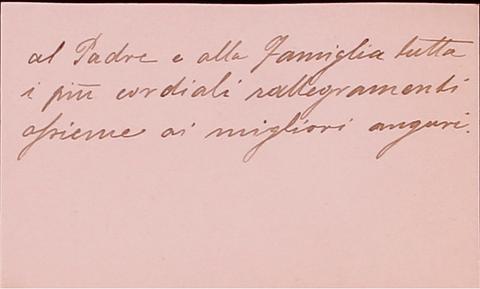 al Padre e alla famiglia tutta
i più cordiali rallegramenti
assieme ai migliori auguri.